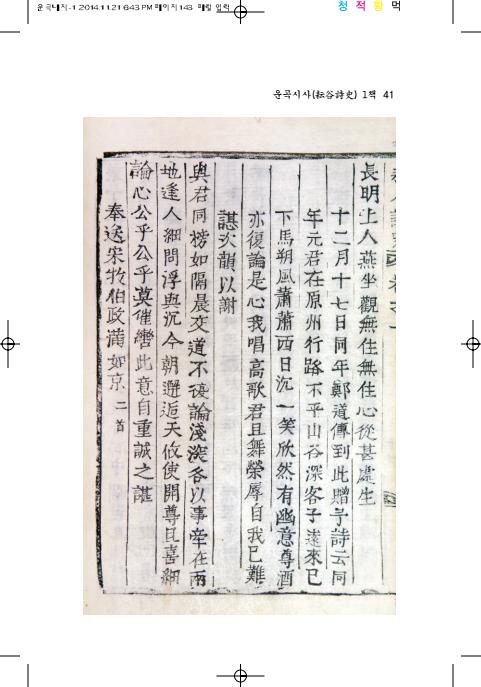 운곡대지-1 2014.11.21 6:43 PM 페이지143 매킬 입력
청 적 황 먹
운곡시사(耘谷詩史) 1책 41
長明上人燕坐觀無住無住心從甚處生
十二月十七日同年鄭道傳到此贈予詩云同
年元君在原州行路不平山谷深客子遠來已
下馬朔風蕭蕭西日沉一笑欣然有幽意尊酒
亦復論是心我唱高歌君且舞榮辱自我已難
諶次韻以謝
與君同榜如隔晨交道不復論淺深各以事牽在兩
地逢人細問浮與沉今朝邂逅天攸使開尊且喜細
論心公乎公乎莫催轡此意自重誠之諶
奉送宋牧伯政滿如京 二首